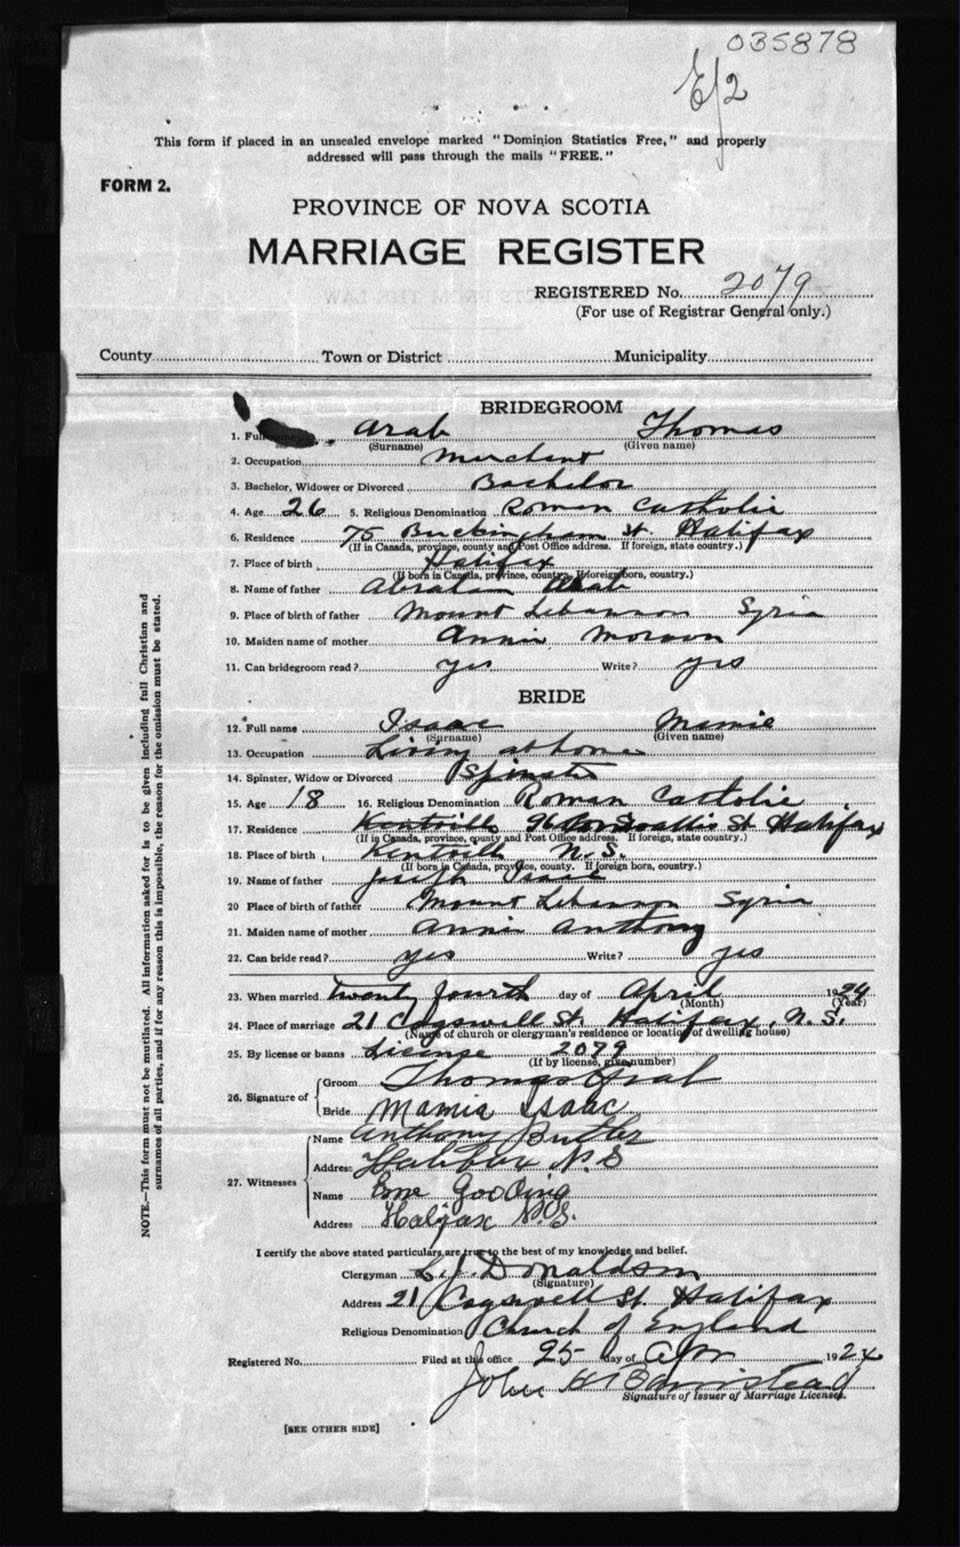 035878
E/2
This form if placed in an unsealed envelope marked "Dominion Statistics Free," and properly
addressed will pass through the mails "FREE."
FORM 2.
PROVINCE OF NOVA SCOTIA
MARRIAGE REGISTER
REGISTERED No. 2079
(For use of Registrar General only.)
County Town or District Municipality
BRIDEGROOM
1. Full Arab Thomas
(Surname) (Given name)
2. Occupation Merchant
3. Bachelor, Widower or Divorced Bachelor
4. Age 26 5. Religious Denomination Roman Catholic
6. Residence 75 Buckingham St. Halifax
(If in Canada, province, county and Post Office address. If foreign, state country.)
7. Place of birth Halifax
(If born in Canada, province, country. If foreign born, country.)
8. Name of father Abraham Arab
9. Place of birth of father Mount Lebannon Syria
10. Maiden name of mother Annie
11. Can bridegroom read? yes Write? yes
BRIDE
12. Full name Isaac Mamie
(Surname) (Given name)
13. Occupation Living at home
14. Spinster, Widow or Divorced Spinster
15. Age 18 16. Religious Denomination Roman Catholic
17. Residence Kentville 96 Cornwallis St Halifax
(If in Canada, province, county and Post Office address. If foreign, state country.)
18. Place of birth Kentville N.S.
(If born in Canada, province, county. If foreign born, country.)
19. Name of father Joseph Isaac
20 Place of birth of father Mount Lebannon Syria
21. Maiden name of mother Annie Anthony
22. Can bride read? yes Write? yes
23. When married twenty fourth day of April 1924
(Month) (Year)
24. Place of marriage 21 Cogswell St. Halifax, N.S.
(Name of church or clergyman's residence or location of dwelling house)
25. By license or banns License 2079
(If by license, give number)
26. Signature of Groom Thomas Arab
Bride Mamie Isaac
27. Witnesses Name Anthony Butler
Address Halifax N.S
Name Gooding
Address Halifax N.S.
I certify the above stated particulars are true to the best of my knowledge and belief.
Clergyman L.J. Donaldson
(Signature)
Address 21 Cogswell St. Halifax
Religious Denomination Church of England
Registered No. Filed at this office 25 day of Apr 1924
John H Barnstead
Signature of Issuer of Marriage Licenses.
[SEE OTHER SIDE]
NOTE.—This form must not be mutilated. All information asked for is to be given including full Christian and
surnames of all parties, and if for any reason this is impossible, the reason for the omission must be stated.